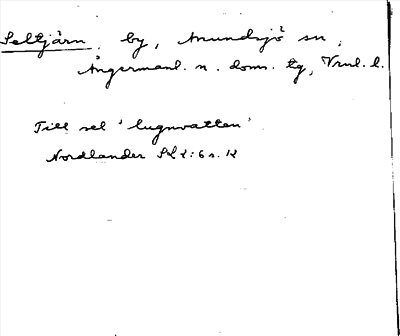 Seltjärn, by, Anundsjö sn,
Ångermanl. n. doms. tg, Vnrl. l.
Till sel 'lugnvatten'
Nordlander SL 2:6 s. 12